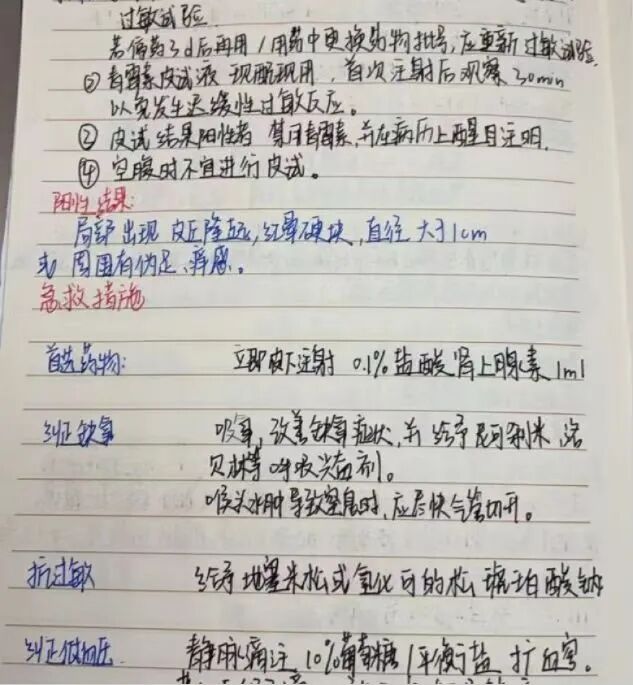 过敏试验.
若停药3d后再用/用药中更换药物批号,应重新过敏试验.
② 青霉素皮试液 现配现用,首次注射后观察30min
以免发生迟缓性过敏反应。
③ 皮试结果阳性者 禁用青霉素,并在病历上醒目注明.
④ 空腹时不宜进行皮试。
阳性结果:
局部出现 皮丘隆起,红晕硬块,直径大于1cm
或周围有伪足、痒感。
急救措施
首选药物: 立即皮下注射 0.1%盐酸肾上腺素1ml
纠正缺氧 吸氧,改善缺氧症状,并给予尼可刹米、洛
贝林等呼吸兴奋剂。
喉头水肿导致窒息时,应尽快气管切开。
抗过敏 给予地塞米松或氢化可的松琥珀酸钠
纠正低血压. 静脉滴注10%葡萄糖/平衡盐 扩血容。